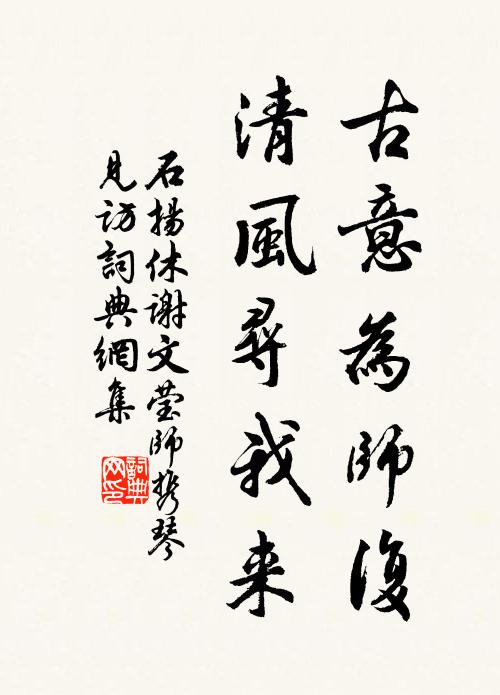 古意為師復
清風尋我来
石揚休謝文瑩師携琴
見訪詞典網集
詞典
网印